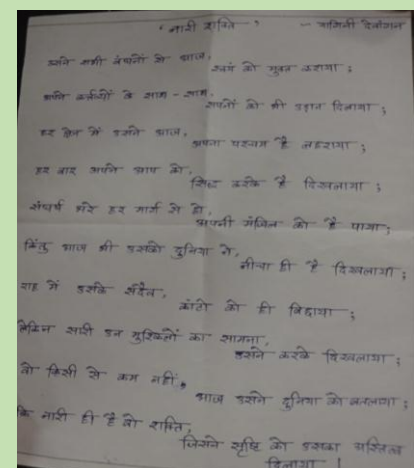 " नारी शक्ति " - यामिनी
उसने सभी बंधनों से आज,
स्वयं को मुक्त कराया ;
अपने कर्तव्यों के साथ - साथ,
सपनों को भी उड़ान दिलाया ;
हर क्षेत्र में उसने आज,
अपना परचम है लहराया ;
हर बार अपने आप को,
सिद्ध करके है दिखलाया ;
संघर्ष भरे हर मार्ग से हो,
अपनी मंजिल को है पाया ;
किंतु आज भी उसको दुनिया ने,
नीचा ही है दिखलाया ;
राह में उसके सदैव,
कांटों को ही बिछाया ;
लेकिन सारी उन मुश्किलों का सामना,
उसने करके दिखलाया ;
वो किसी से कम नहीं,
आज उसने दुनिया को बतलाया ;
कि नारी ही है वो शक्ति,
जिसने सृष्टि को उसका अस्तित्व
दिलाया !